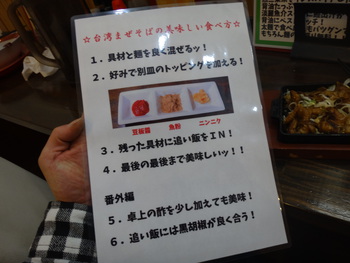 ☆台湾まぜそばの美味しい食べ方☆
1．具材と麺を良く混ぜるッ！
2．好みで別皿のトッピングを加える！
豆板醤　魚粉　ニンニク
3．残った具材に追い飯をＩＮ！
4．最後の最後まで美味しいッ！！
番外編
5．卓上の酢を少し加えても美味！
6．追い飯には黒胡椒が良く合う！